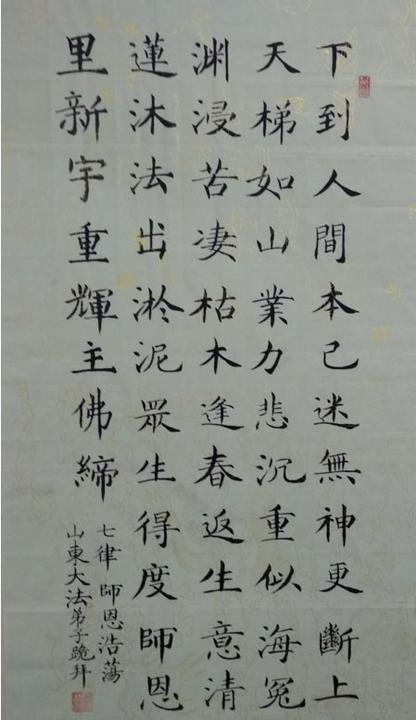 下到人間本已迷無神更斷上
天梯如山業力悲沉重似海冤
渊浸苦凄枯木逢春返生意清
蓮沐法出淤泥眾生得度師恩
里新宇重輝主佛締
七律 師恩浩蕩
山東大法弟子跪拜